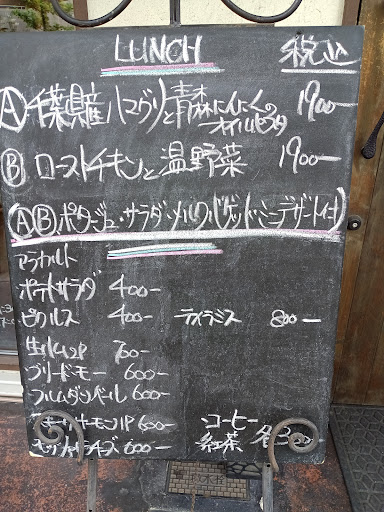 LUNCH 税込
Ⓐ千葉県産ハマグリと青森にんにくのオイルパスタ 1900
Ⓑローストチキンと温野菜 1900-
(ⒶⒷポタージュ・サラダ・メルバ・バゲット・ミニデザート付)
アラカルト
ポテトサラダ 400-
ピクルス 400- ティラミス 800-
生ハム2P 700-
ブリードモー 600-
フルムダンベール 600-
600- コーヒー
600- 紅茶 各300-